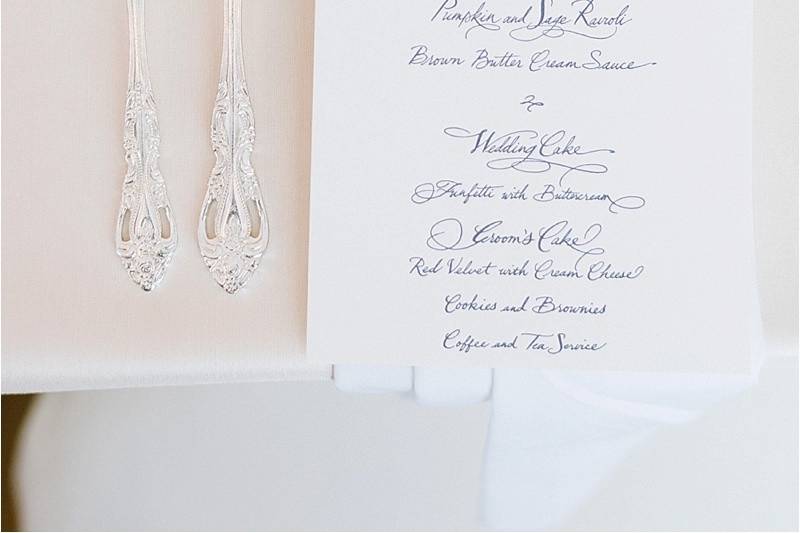 Pumpkin and Sage Ravioli
Brown Butter Cream Sauce
Wedding Cake
Funfetti with Buttercream
Groom's Cake
Red Velvet with Cream Cheese
Cookies and Brownies
Coffee and Tea Service